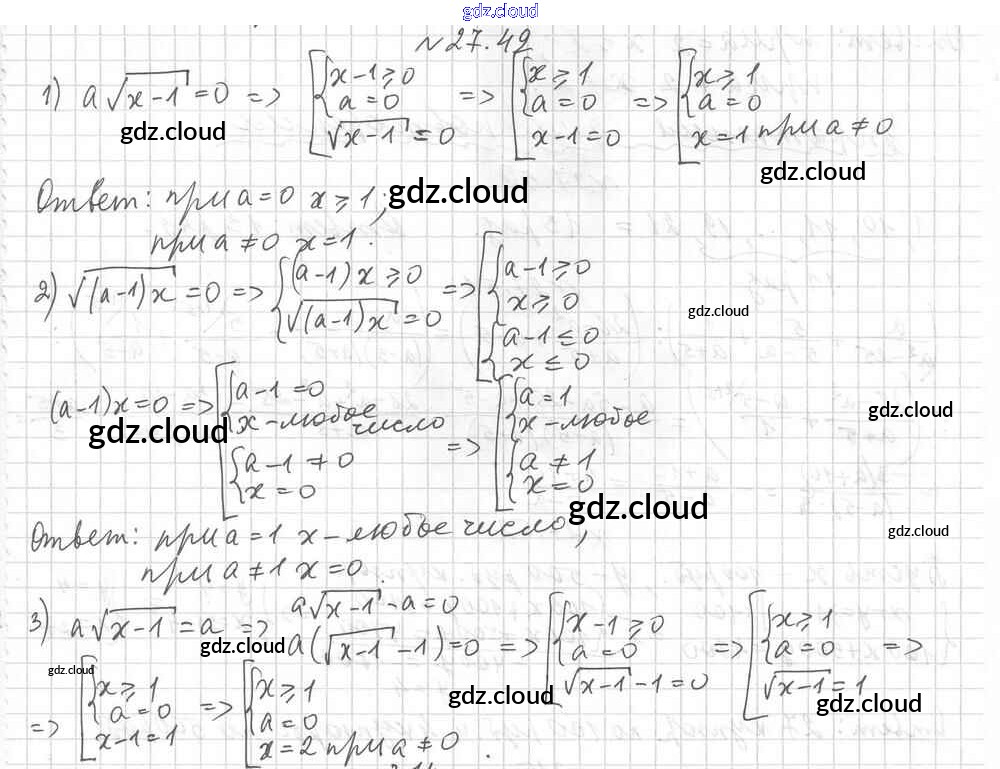 gdz.cloud
№27.49
1) a√(x-1) = 0 => [ { x-1 ≥ 0 a = 0 √(x-1) = 0 => [ { x ≥ 1 a = 0 x-1 = 0 => [ { x ≥ 1 a = 0 x = 1 при a ≠ 0
gdz.cloud
gdz.cloud
Ответ: при a = 0 x ≥ 1;
gdz.cloud
при a ≠ 0 x = 1.
2) √((a-1)x) = 0 => { (a-1)x ≥ 0 √((a-1)x) = 0 => [ { a-1 ≥ 0 x ≥ 0 { a-1 ≤ 0 x ≤ 0
gdz.cloud
(a-1)x = 0 => [ { a-1 = 0 x - любое число { a-1 ≠ 0 x = 0 => [ { a = 1 x - любое { a ≠ 1 x = 0
gdz.cloud
gdz.cloud
gdz.cloud
Ответ: при a = 1 x - любое число,
gdz.cloud
при a ≠ 1 x = 0.
3) a√(x-1) = a => a√(x-1) - a = 0
a(√(x-1) - 1) = 0 => [ { x-1 ≥ 0 a = 0 √(x-1) - 1 = 0 => [ { x ≥ 1 a = 0 √(x-1) = 1 =>
gdz.cloud
gdz.cloud
gdz.cloud
gdz.cloud
=> [ { x ≥ 1 a = 0 x-1 = 1 => [ { x ≥ 1 a = 0 x = 2 при a ≠ 0.